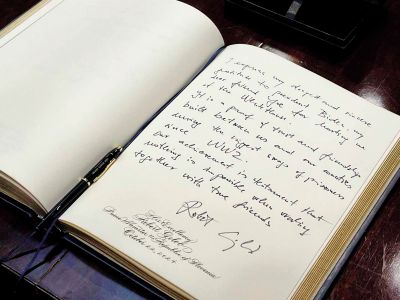 I express my deepest and sincere
gratitude to president Biden, my
dear friend Joe for hosting us
at the White House.
It is a proof of trust and friendship
built between us and our countries
during the biggest swap of prisoners
since WW2.
Our achievement is testament that
nothing is impossible when working
together with true friends
Robert Golob
His Excellency
Robert Golob
Prime Minister of the Republic of Slovenia
October 22, 2024